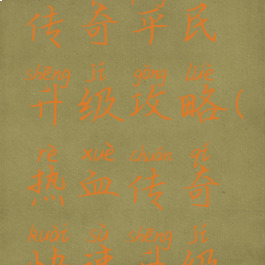 传奇平民
shēng jí gōng lüè
升级攻略(
rè xuè chuán qí
热血传奇
kuài sù shēng jí
快速升级